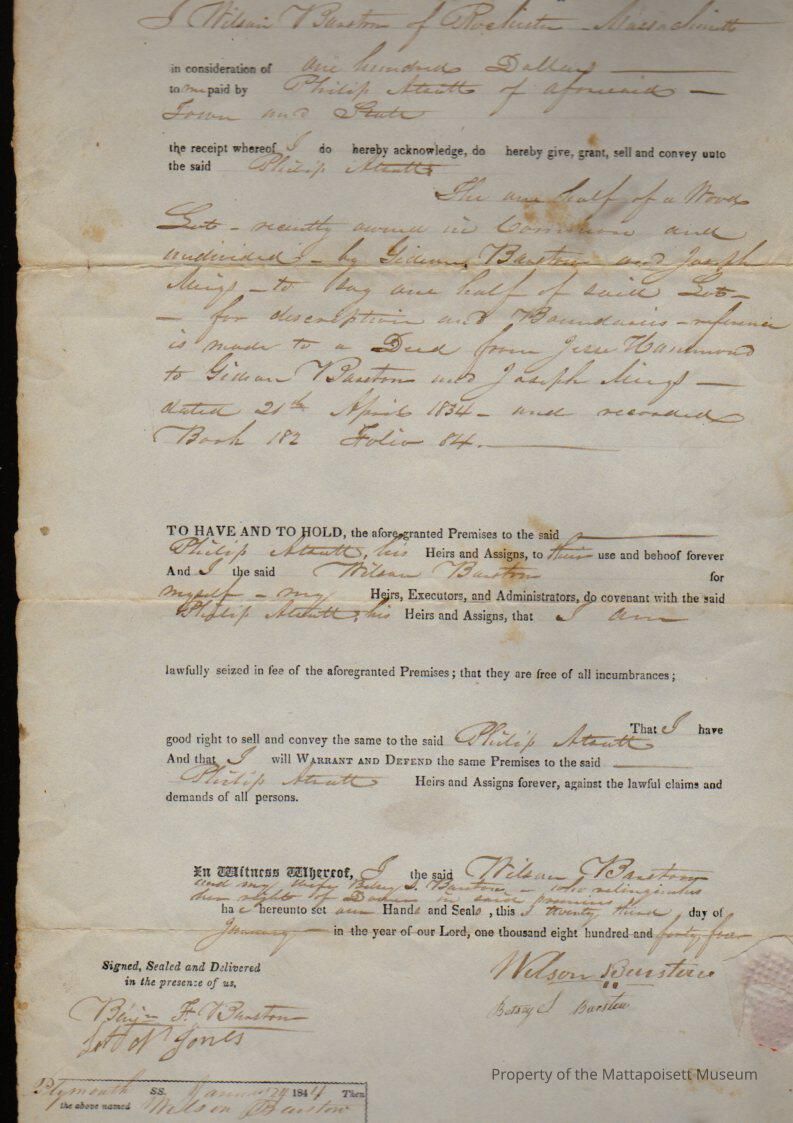 I Wilson Barstow of Rochester Massachusetts
in consideration of one hundred Dollars
to me paid by Philip Atsatt of aforesaid
Town and State
the receipt whereof I do hereby acknowledge, do hereby give, grant, sell and convey unto
the said Philip Atsatt
The one half of a Wood
Lot - recently owned in Common and
undivided - by Gideon Barstow and Joseph
Meigs - to say one half of said Lot -
- for description and Boundaries - reference
is made to a Deed from Jesse Hammond
to Gideon Barstow and Joseph Meigs -
dated 21th April 1834 - and recorded
Book 182 Folio 84.
TO HAVE AND TO HOLD, the afore-granted Premises to the said
Philip Atsatt, his Heirs and Assigns, to their use and behoof forever
And I the said Wilson Barstow for
myself - my Heirs, Executors, and Administrators, do covenant with the said
Philip Atsatt, his Heirs and Assigns, that I am
lawfully seized in fee of the aforegranted Premises; that they are free of all incumbrances;
That I have
good right to sell and convey the same to the said Philip Atsatt
And that I will WARRANT AND DEFEND the same Premises to the said
Philip Atsatt Heirs and Assigns forever, against the lawful claims and
demands of all persons.
In Witness Whereof, I the said Wilson Barstow
and my wife Betsey S. Barstow - who relinquishes
her right of Dower in said premises
have hereunto set our Hands and Seals, this twenty third day of
January in the year of our Lord, one thousand eight hundred and forty four
Signed, Sealed and Delivered
in the presence of us,
Wilson Barstow
Betsey S Barstow
Benj. F. Barstow
Jones
Plymouth SS. January 24 1844 Then
the above named Wilson Barstow
Property of the Mattapoisett Museum